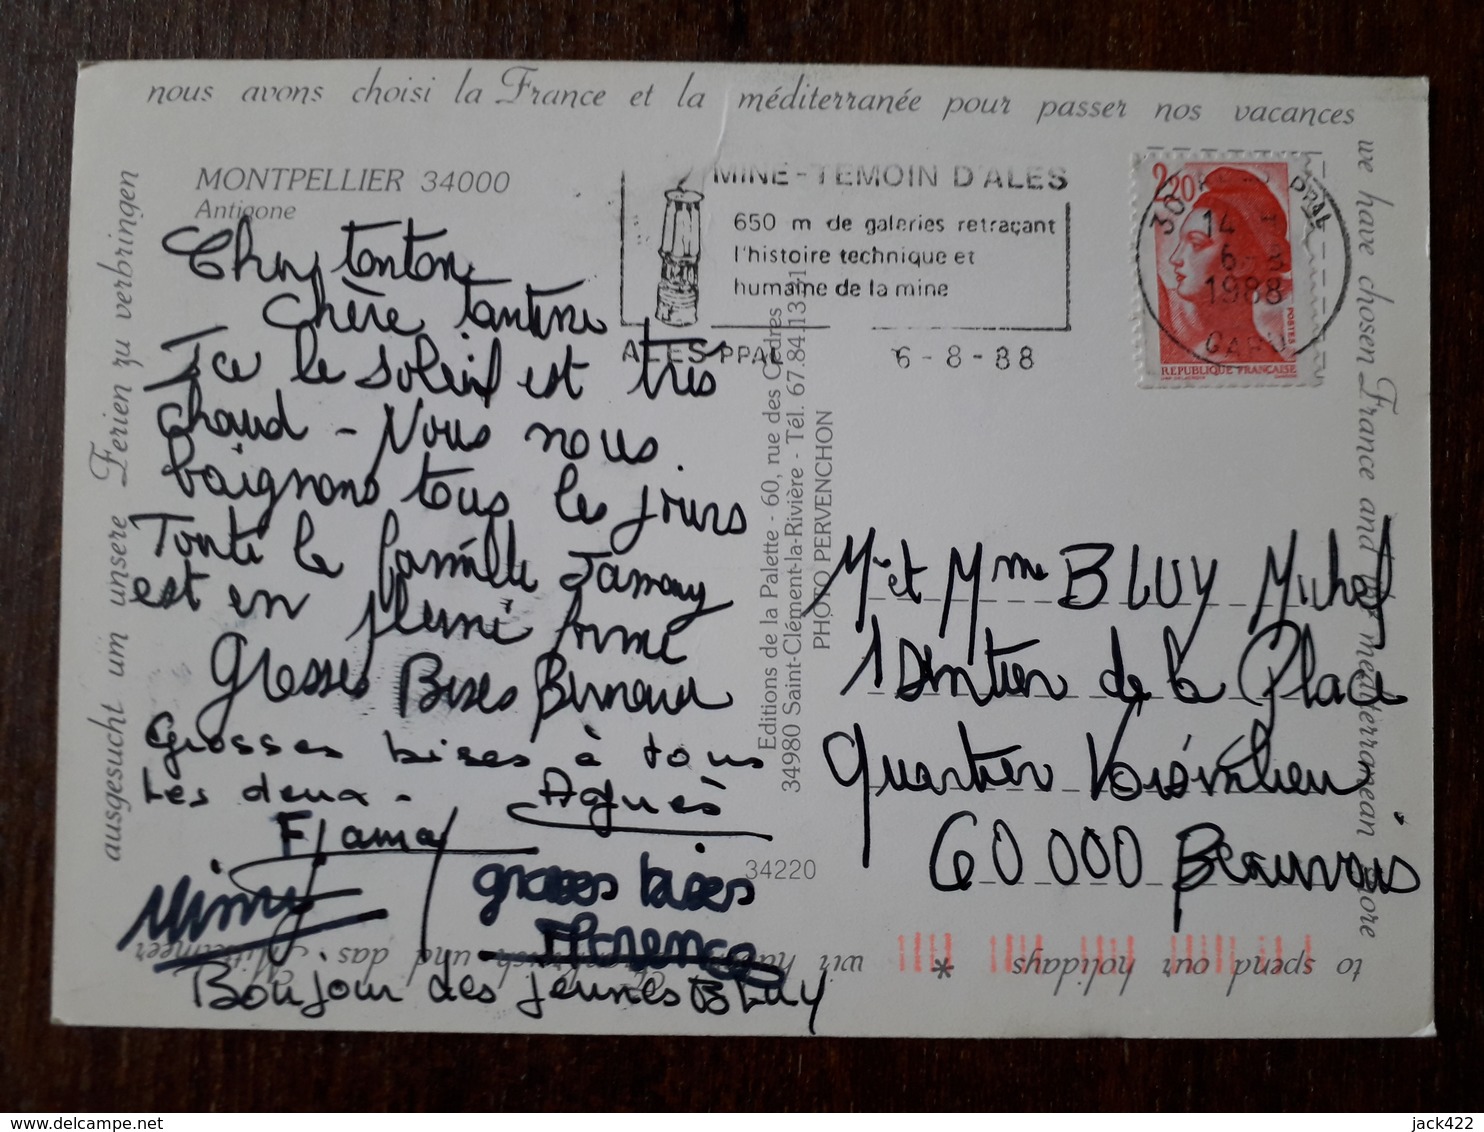 nous avons choisi la France et la méditerranée pour passer nos vacances
we have chosen France and the mediterranean shore
to spend our holidays
*
wir haben Frankreich und das Mittelmeer
ausgesucht um unsere Ferien zu verbringen
MONTPELLIER 34000
Antigone
MINE-TEMOIN D'ALES
650 m de galeries retraçant
l'histoire technique et
humaine de la mine
ALES PPAL 6-8-88
2,20
14 H
6-8
1988
GARD
POSTES
REPUBLIQUE FRANÇAISE
Cher tonton
Chère Tantine
Ice le soleil est très
chaud - Nous nous
baignons tous les jours
Toute la famille Jamay
est en pleine forme
Grosses Bises Bernard
Grosses bises à tous
les deux - Agnès
FJamay
Mimy
grosses bises
Florence
Bonjour des jeunes BLUY
Editions de la Palette - 60, rue des Cèdres
34980 Saint-Clément-la-Rivière - Tél. 67.84.13.81
PHOTO PERVENCHON
34220
Mr et Mme BLUY Michel
1 Sentier de la Place
Quartier Voisinlieu
60 000 Beauvais
jack422